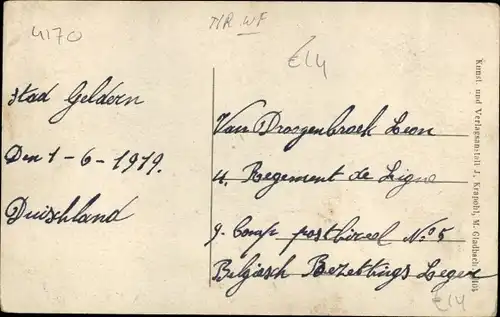 4170
T/R WF
€14
Stad Geldern
Den 1-6-1919.
Duischland
Van Droogenbroek Leon
4. Regement de Ligne
9. Comp postbureel No 5
Belgisch Bezettings Leger
€14
Kunst- und Verlagsanstalt J. Krapohl, M. Gladbach